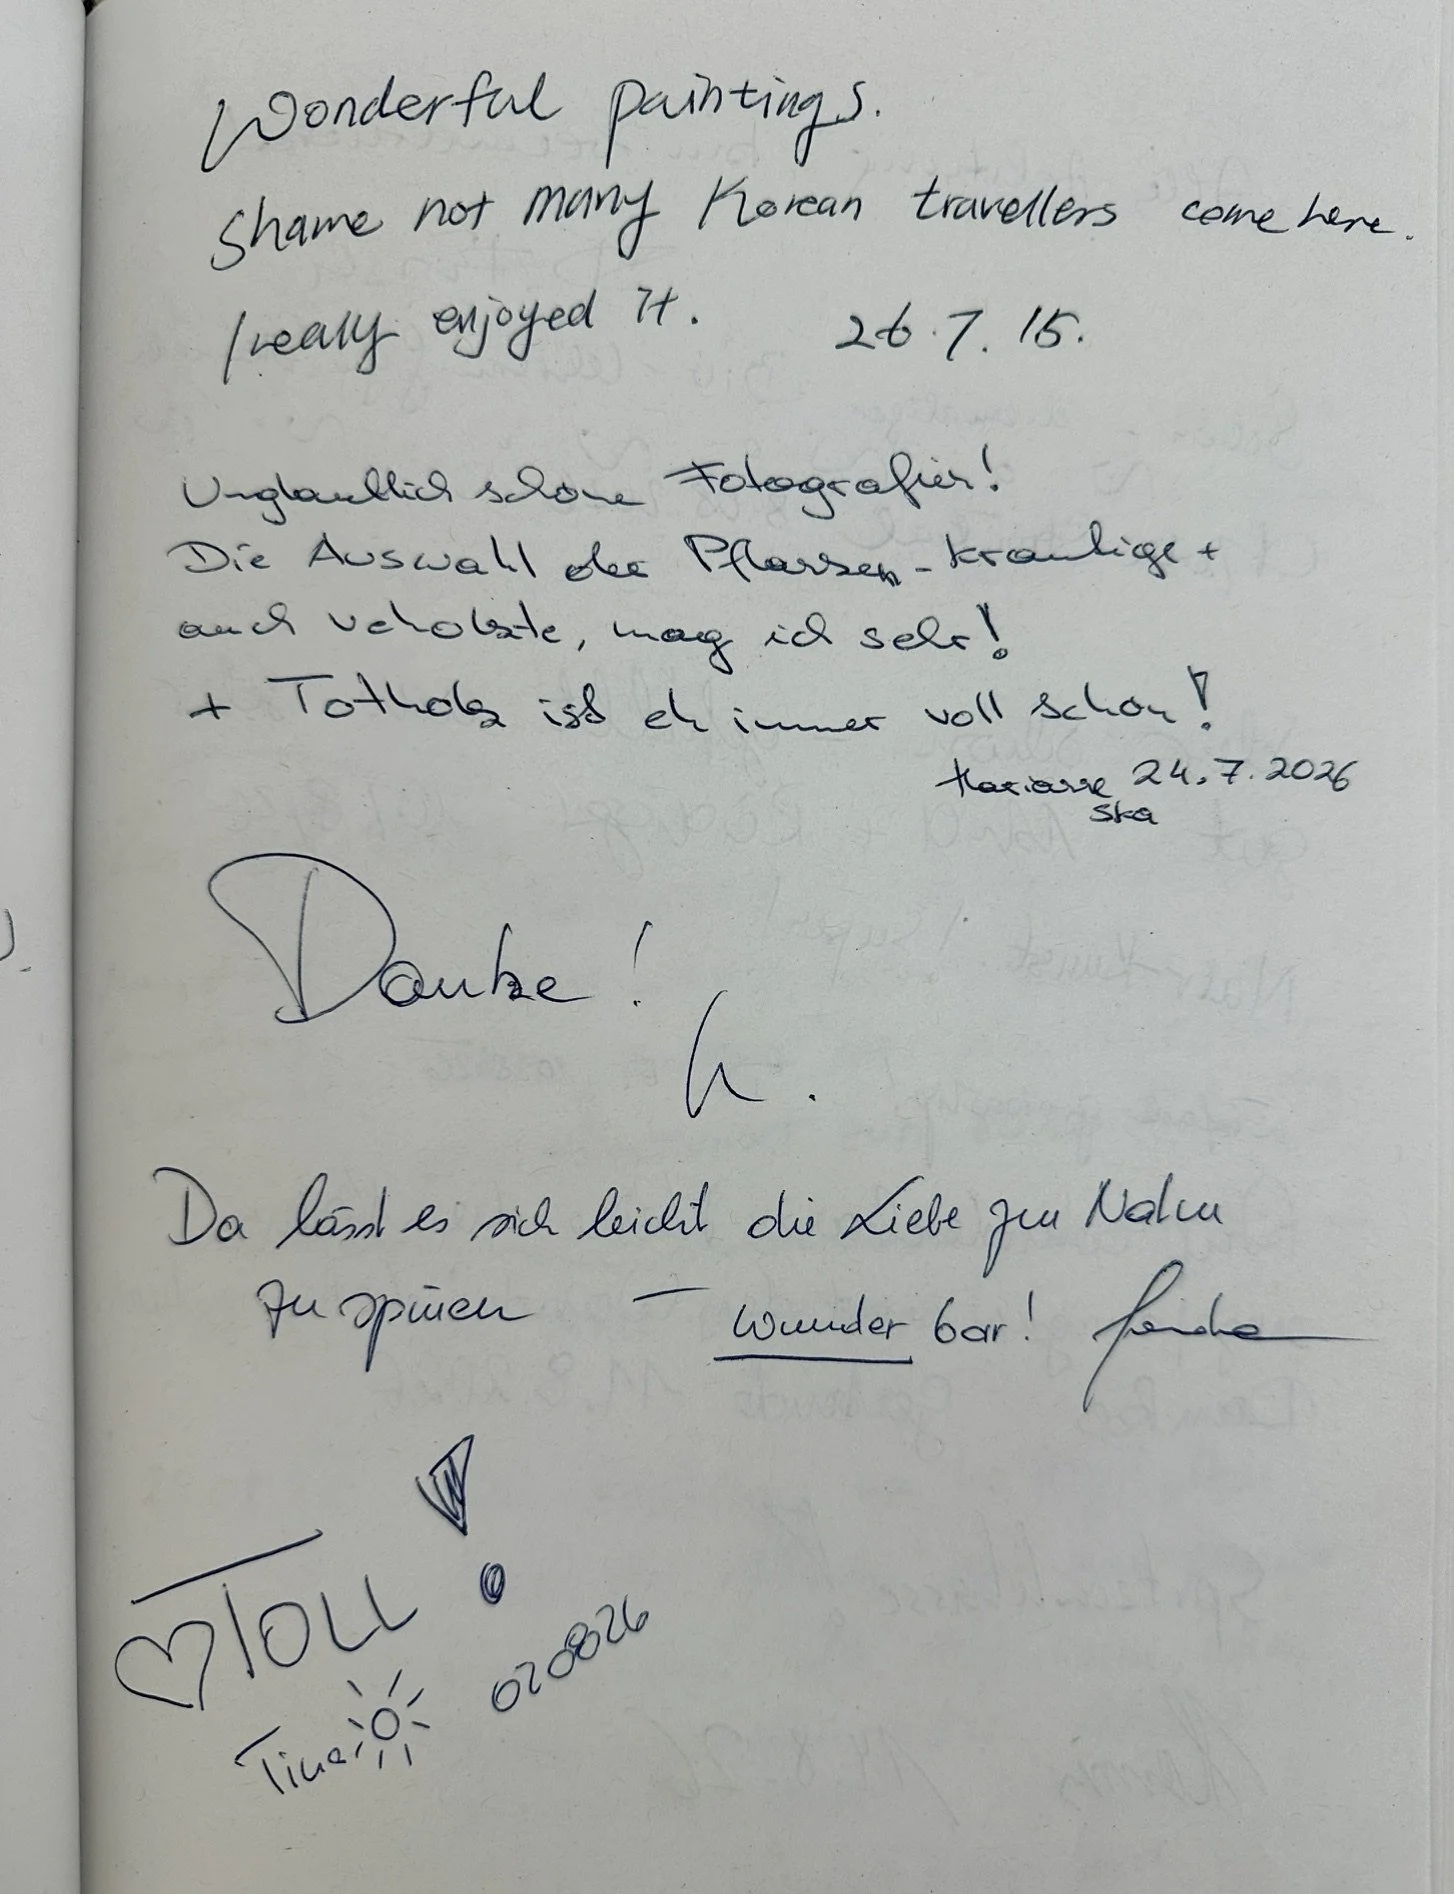 Wonderful paintings.
Shame not many Korean travellers come here.
I really enjoyed it. 26.7.15.
Unglaublich schöne Fotografien!
Die Auswahl der Pflanzen - krautige +
auch veholzte, mag ich sehr!
+ Totholz ist eh immer voll schön!
Marianne 24.7.2026
ska
Danke!
h.
Da lässt es sich leicht die Liebe zur Natur
zu spüren — wunderbar!
TOLL!
Tina 020826